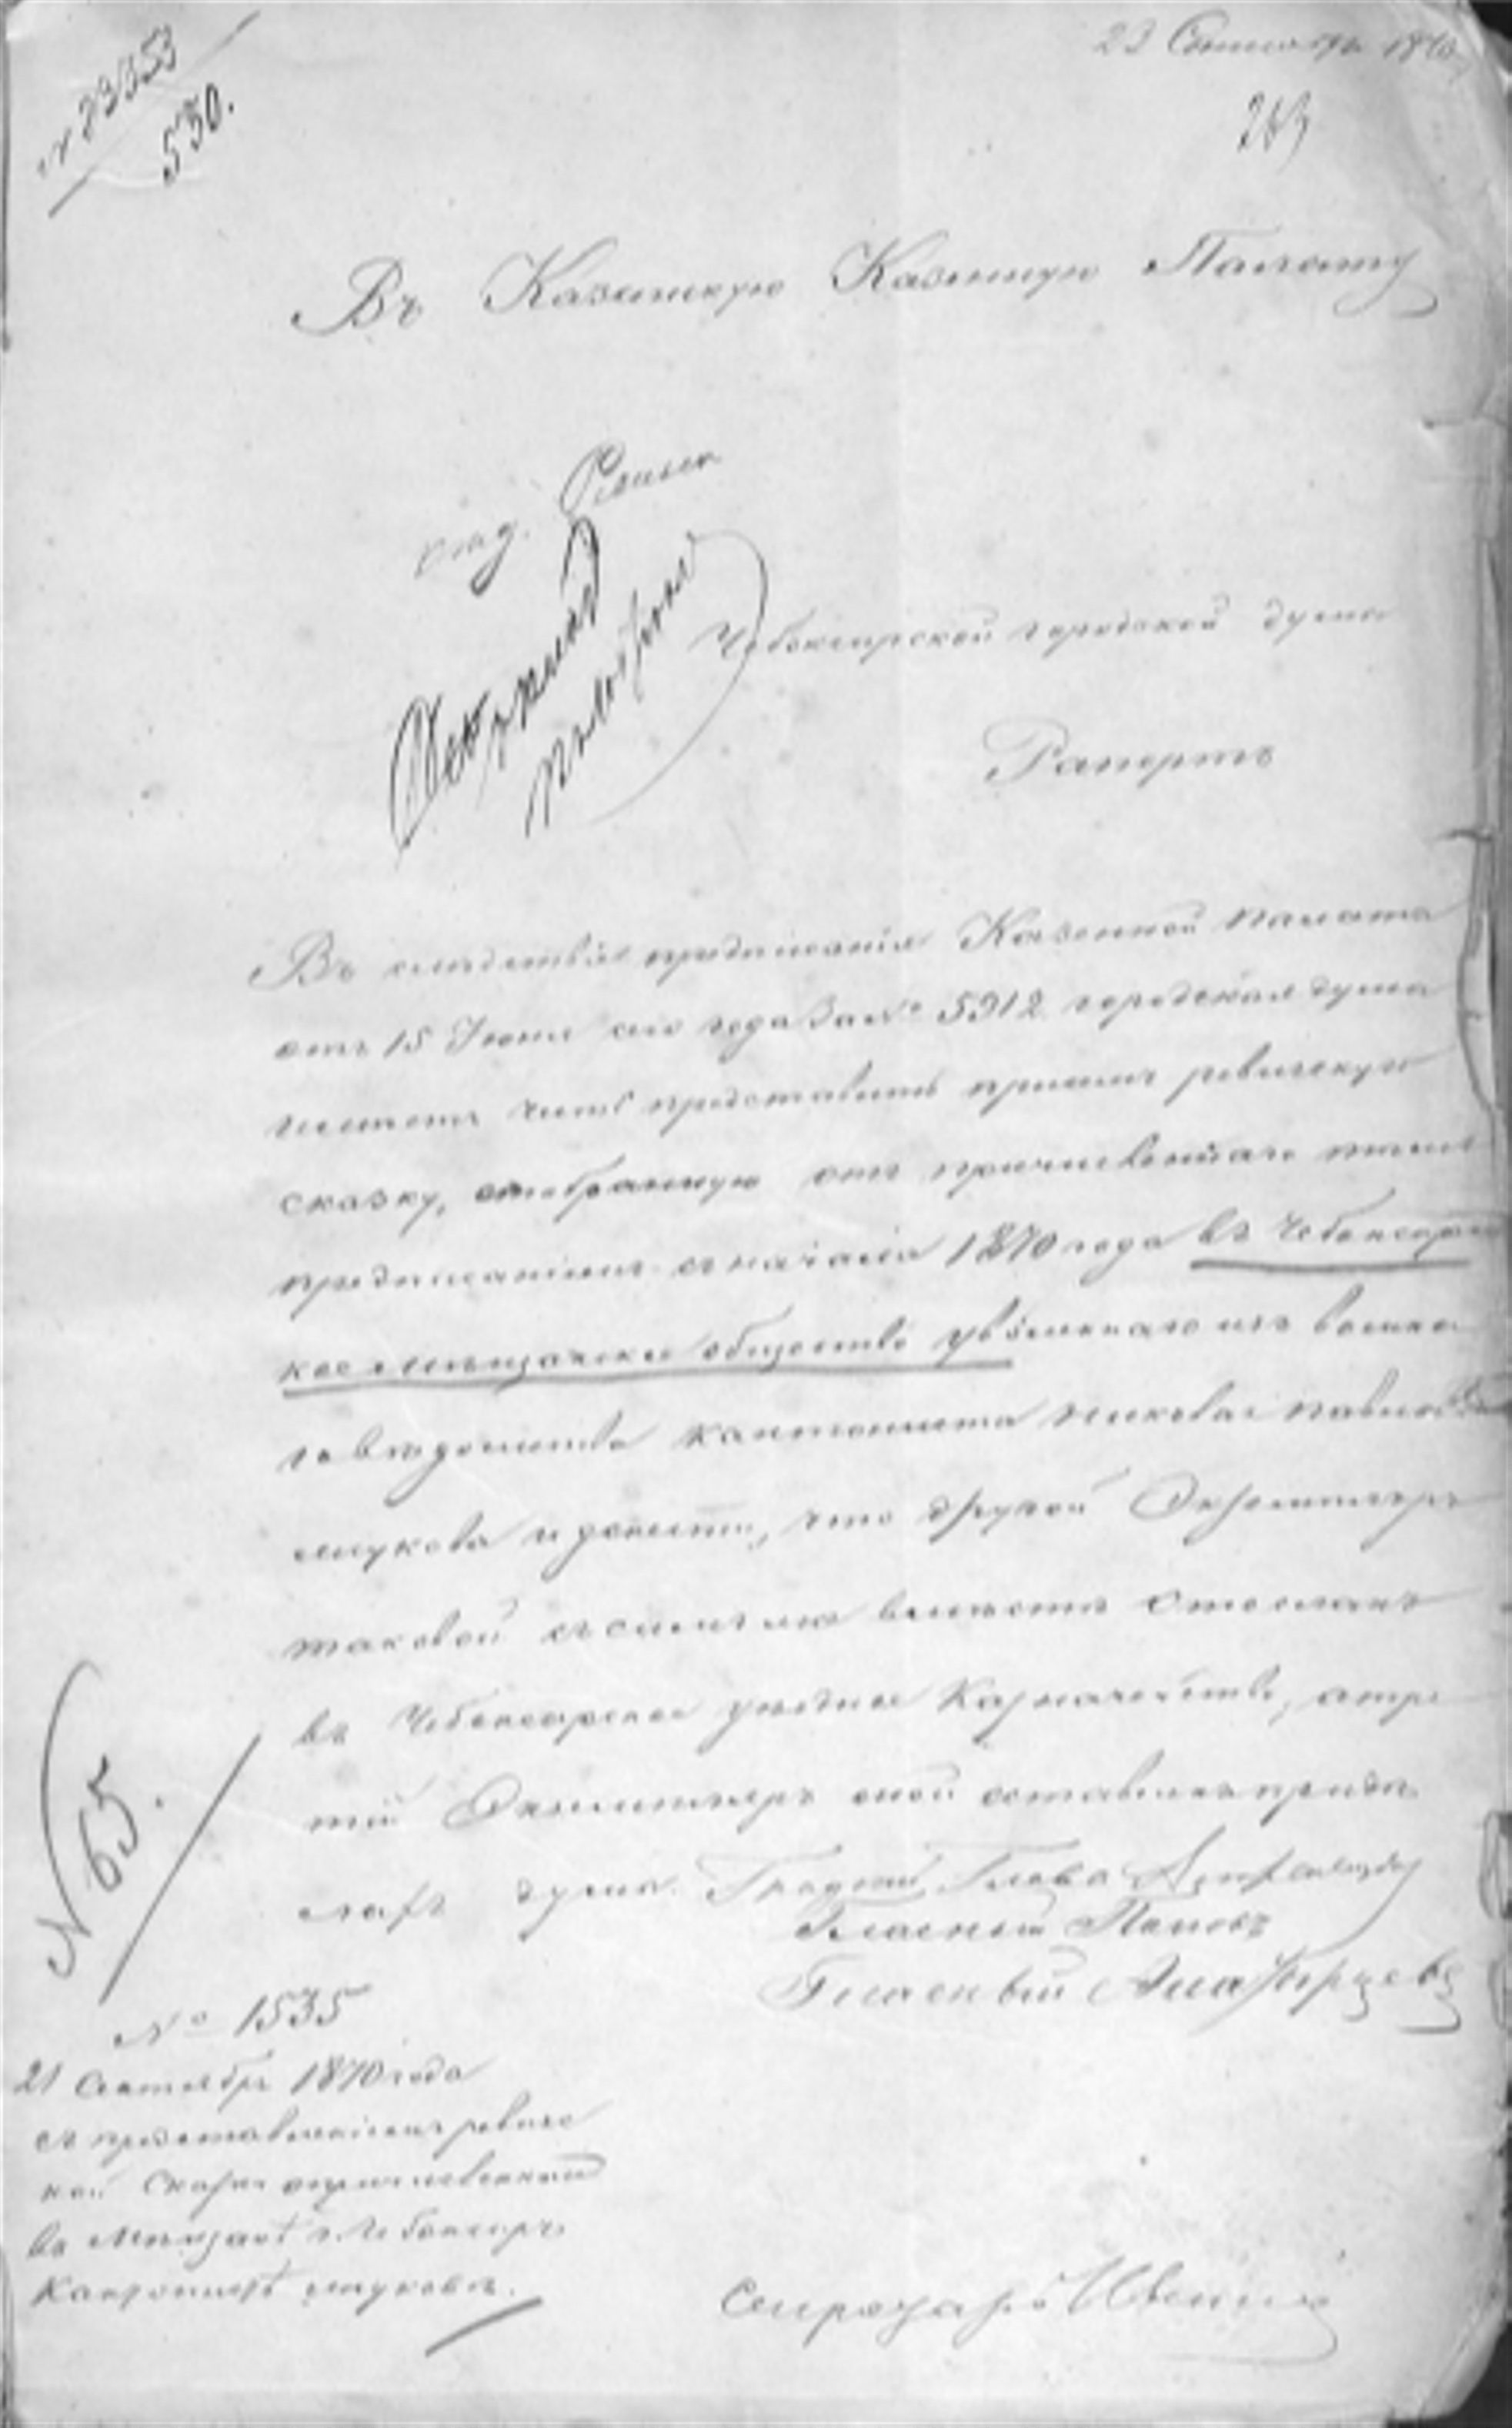 № 23353
530.
23 Сентября 1870
263
Въ Казанскую Казенную Палату
Чебоксарской городской думы
Рапортъ
Въ следствіе предписанія Казенной палаты
отъ 15 Іюня сего года за № 5912 городская дума
честь представить при семъ ревизскую
сказку, отобранную отъ причисленнаго темъ
предписаніемъ съ начала 1870 года въ Чебоксарс
кое мещанское общество уволеннаго изъ военна
го ведомства кантониста Николая Павлова
мукова и донести, что другой Экземпляръ
таковой съ симъ же вместе отосланъ
въ Чебоксарское уездное Казначейство, а тре
тій Экземпляръ оной оставленъ при де
лахъ думы. Градской Глава
Гласный Поповъ
Гласный
№ 65.
№ 1535
21 Сентября 1870 года
съ представленіемъ ревизс
кой Сказки о причисленномъ
въ Мещане г. Чебоксаръ
Кантонисте муковъ.
Секретарь